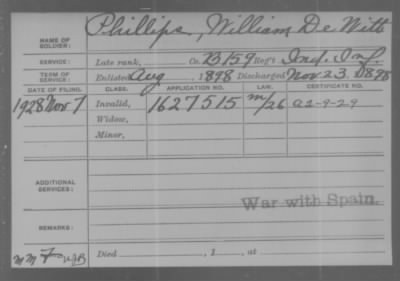 NAME OF SOLDIER: Phillips, William De Witt
SERVICE: Late rank, Co. B 159 Reg't Ind. Inf.
TERM OF SERVICE: Enlisted Aug 1898 Discharged Nov. 23, 1898
DATE OF FILING. CLASS. APPLICATION NO. LAW. CERTIFICATE NO.
1928 Nov 7 Invalid, 1627515 m/26 a2-9-29
Widow,
Minor,
ADDITIONAL SERVICES:
War with Spain.
REMARKS:
Died , 1 , at